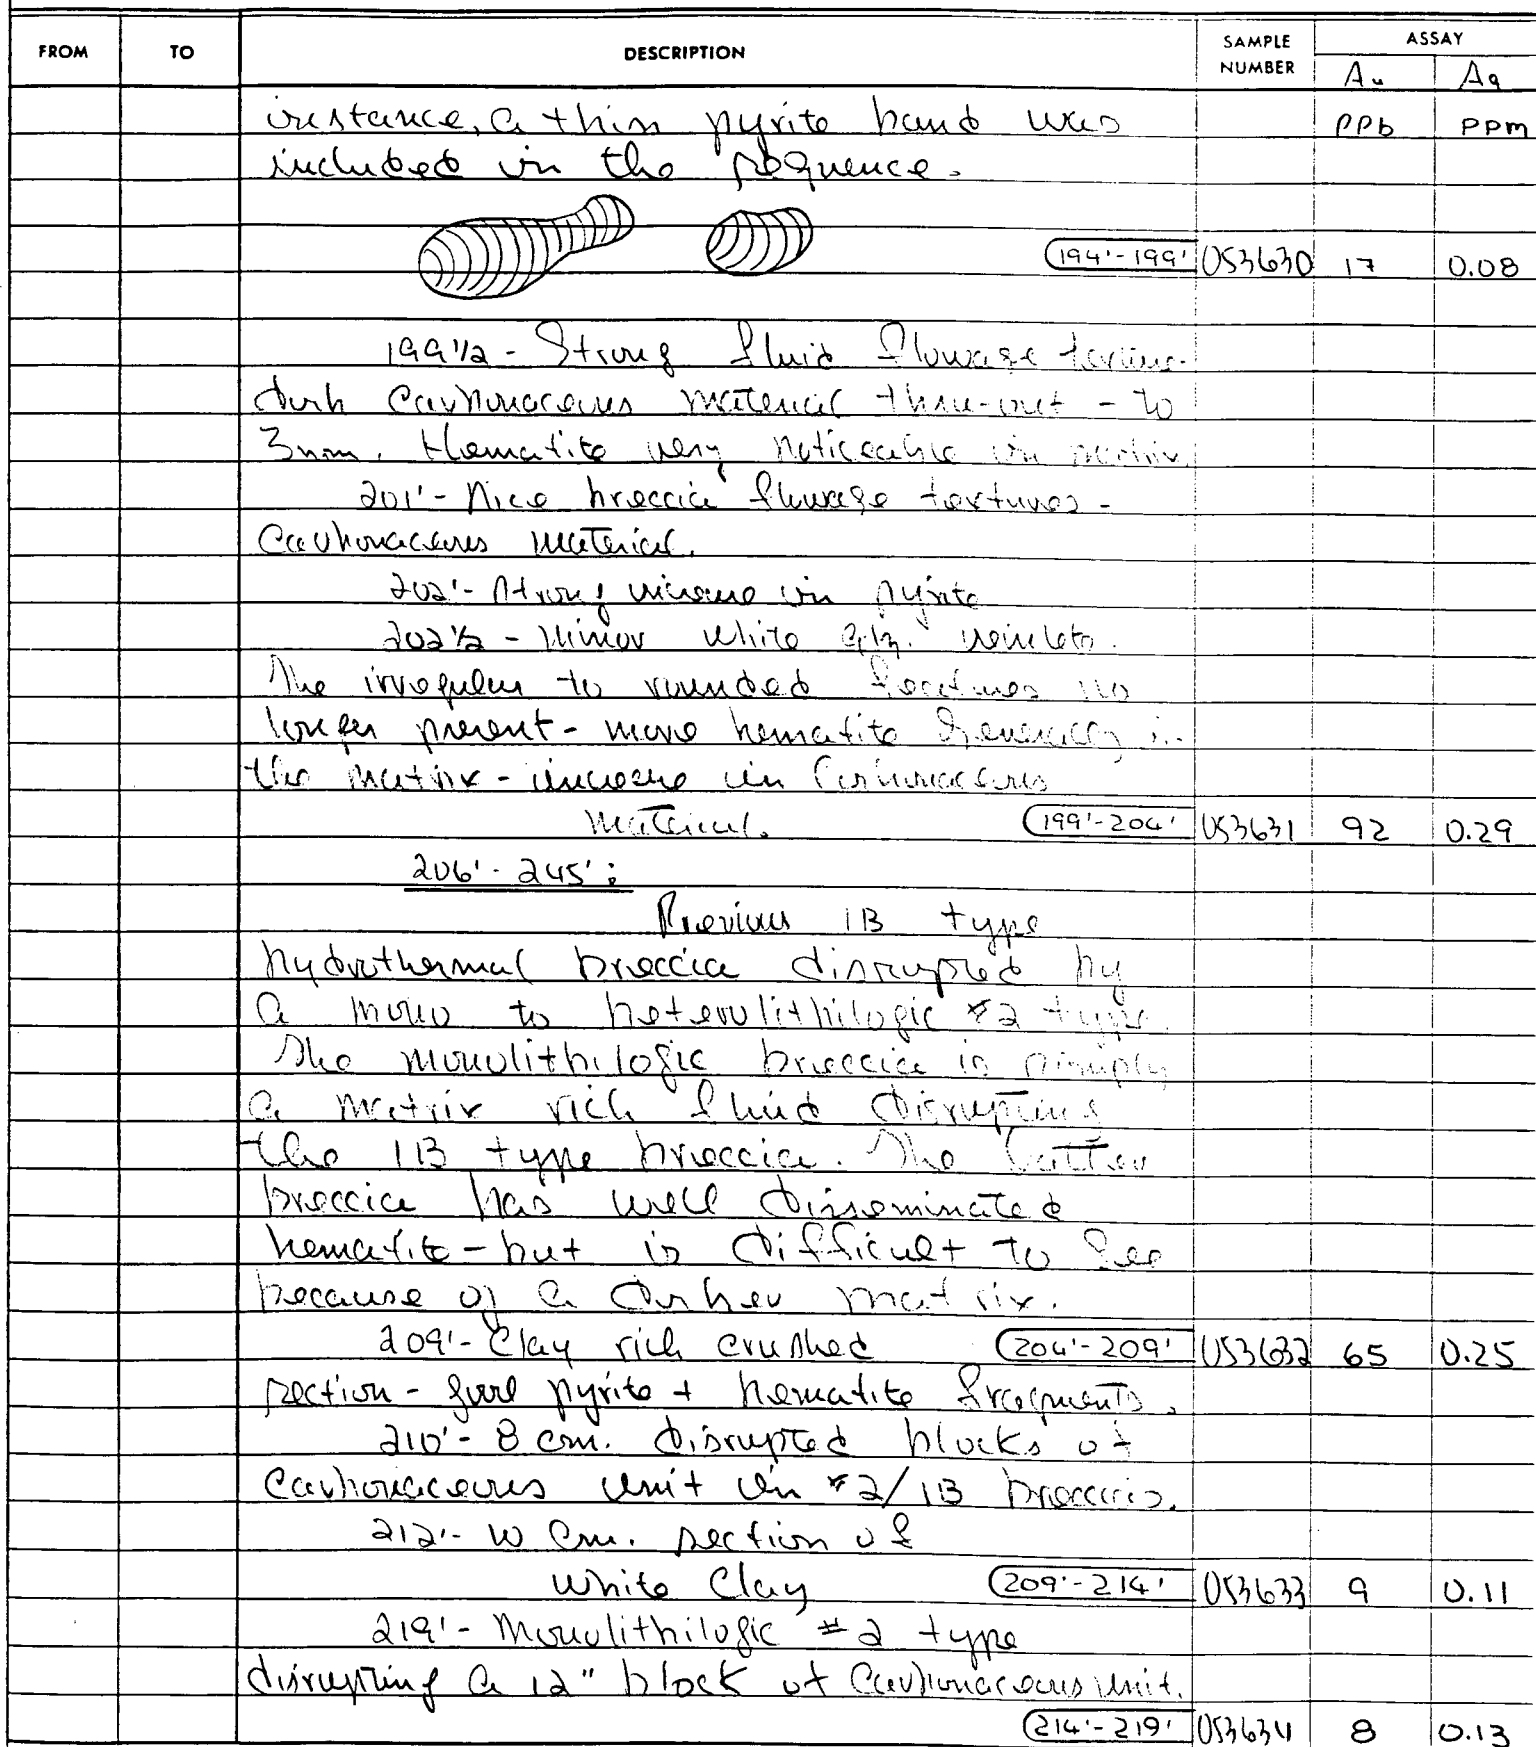 FROM TO DESCRIPTION SAMPLE NUMBER ASSAY
Au Ag
instance, a thin pyrite band was PPb PPm
included in the sequence.
194'-199' 053630 17 0.08
199 1/2 - Strong fluid flowage texture.
dark Carbonaceous material thru-out - to
3mm. Hematite very noticeable in matrix.
201'- Nice breccia flowage textures -
Carbonaceous material.
202'- Strong increase in pyrite
202 1/2 - Minor white qtz. veinlets.
The irregular to rounded features no
longer present - more hematite generally in
the matrix - increase in Carbonaceous
material. 199'-204' 053631 92 0.29
206'- 245':
Previous 1B type
hydrothermal breccia disrupted by
a mono to heterolithilogic #2 type.
The monolithilogic breccia is simply
a matrix rich fluid disrupting
the 1B type breccia. The latter
breccia has well disseminated
hematite - but is difficult to see
because of a darker matrix.
209'- Clay rich crushed 204'-209' 053632 65 0.25
section - good pyrite + hematite fragments.
210'- 8 cm. disrupted blocks of
Carbonaceous unit in #2/1B breccias.
212'- 10 cm. section of
White Clay 209'-214' 053633 9 0.11
219'- Monolithilogic #2 type
disrupting a 12" block of Carbonaceous unit.
214'-219' 053634 8 0.13